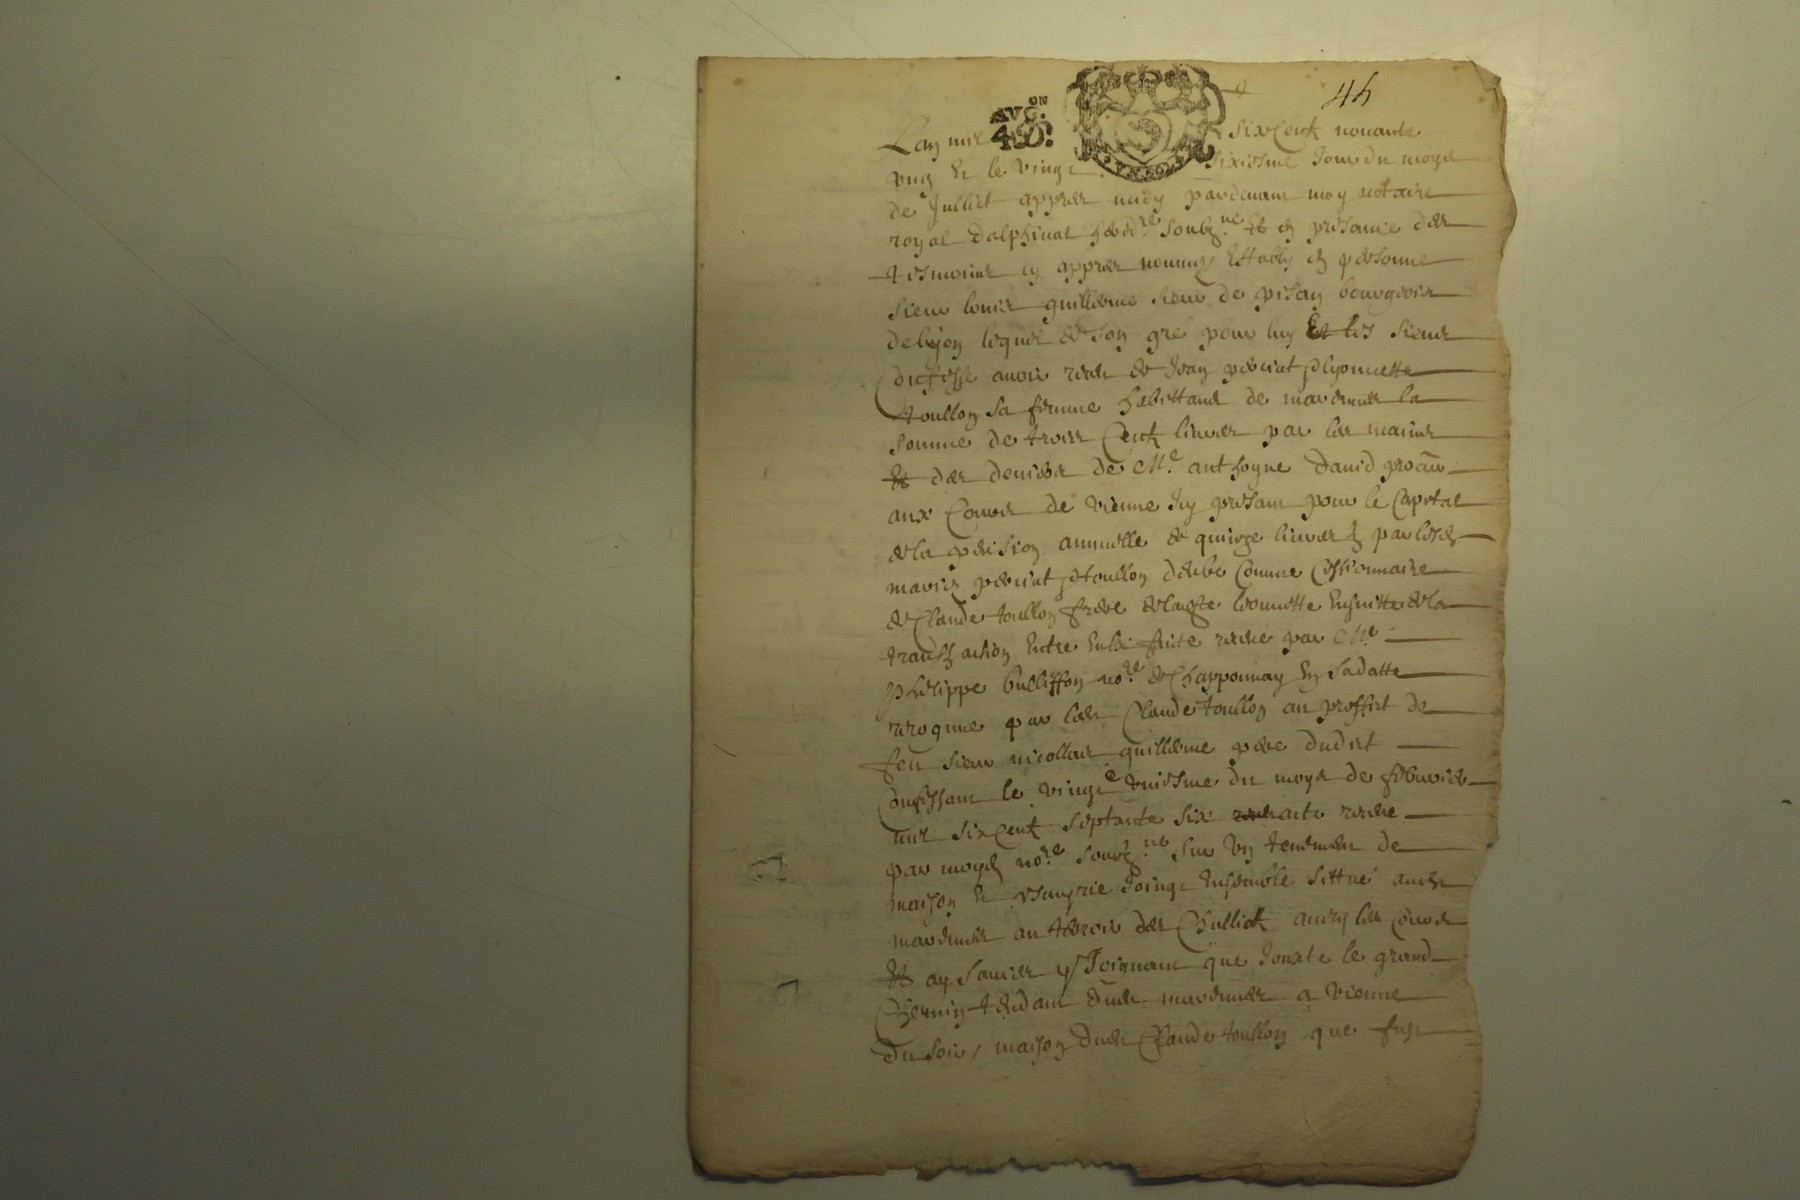 44
AVG.ON
4.D.
Lan mil sixCent nonante
ung Et le vingt sixiesme Jour du moys
de Julliet apprer midy pardevant moy notaire
royal dalphinal heredre soubzne Et en presance der
tesmoins cy apprer nommez Estably en personne
sieur louis guillerme sieur de pisay bourgeois
de lyon lequel de son gre pour luy Et les siens
Confesse avoir receu de Jean perciat lyonnette
toullon sa femme habittans de marennes la
somme de trois Cent livres par les mains
Et der deniers de Me anthoyne david procur
aux Cours de vienne Icy presant pour le Capital
de la pension annuelle de quinze livres par lesd
mariez perciat toullon deube Comme Cessionnaire
de Claude toullon frere de ladte leonnette Ensuitte de la
transaction Entre Eulx faite receue par Me
Philippe nore de Chapponnay En sadatte
reconnue par led Claude toullon au proffit de
feu sieur nicollas guillerme pere dudit
Confessant le vingt uniesme du moys de febvrier
mil sixCent septante six receue
par moyd nore soubzne sur Un tenement de
maison Et joingt Ensemble sittué aud
marennes au terroir der avecq ses Cours
Et Joignant que Jouxte le grand
Chemin tendant dud marennes a vienne
du soir, maison dud Claude toullon que fust